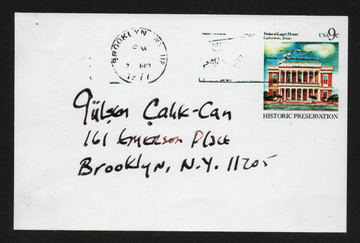 BROOKLYN, NY 112
PM
OCT
1977
Federal Court House
Galveston, Texas
USA 9c
HISTORIC PRESERVATION
Gülsen Çalık-Can
161 Emerson Place
Brooklyn, N.Y. 11205